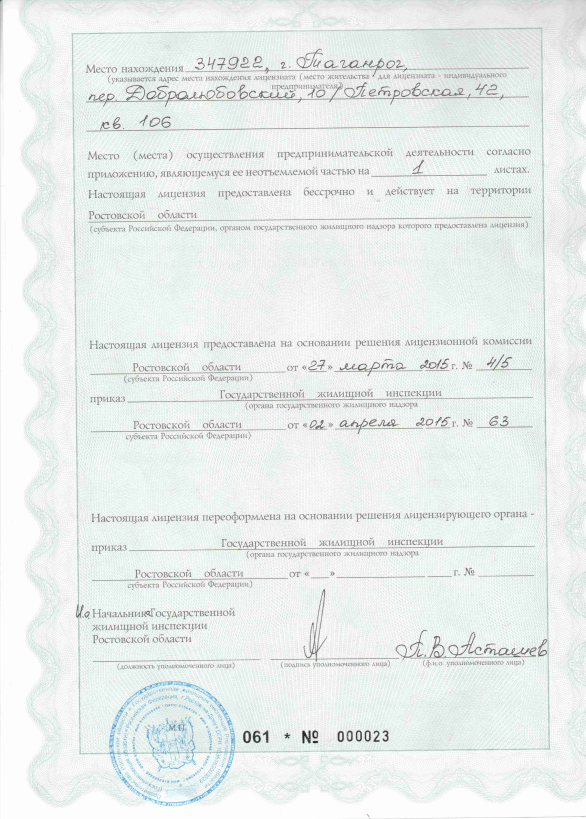 Место нахождения 347922, г. Таганрог,
(указывается адрес места нахождения лицензиата (место жительства - для лицензиата - индивидуального
предпринимателя)
пер. Добролюбовский, 10 / Петровская, 42,
кв. 106
Место (места) осуществления предпринимательской деятельности согласно
приложению, являющемуся ее неотъемлемой частью на 1 листах.
Настоящая лицензия предоставлена бессрочно и действует на территории
Ростовской области
(субъекта Российской Федерации, органом государственного жилищного надзора которого предоставлена лицензия)
Настоящая лицензия предоставлена на основании решения лицензионной комиссии
Ростовской области от «27» марта 2015 г. № 4/5
(субъекта Российской Федерации)
приказ Государственной жилищной инспекции
(органа государственного жилищного надзора
Ростовской области от «02» апреля 2015 г. № 63
субъекта Российской Федерации)
Настоящая лицензия переоформлена на основании решения лицензирующего органа -
приказ Государственной жилищной инспекции
(органа государственного жилищного надзора
Ростовской области от «__» ____ г. № ____
субъекта Российской Федерации)
И.о Начальника Государственной
жилищной инспекции
Ростовской области
П. В. Асташев
(должность уполномоченного лица) (подпись уполномоченного лица) (ф.и.о. уполномоченного лица)
М.П.
061 * № 000023